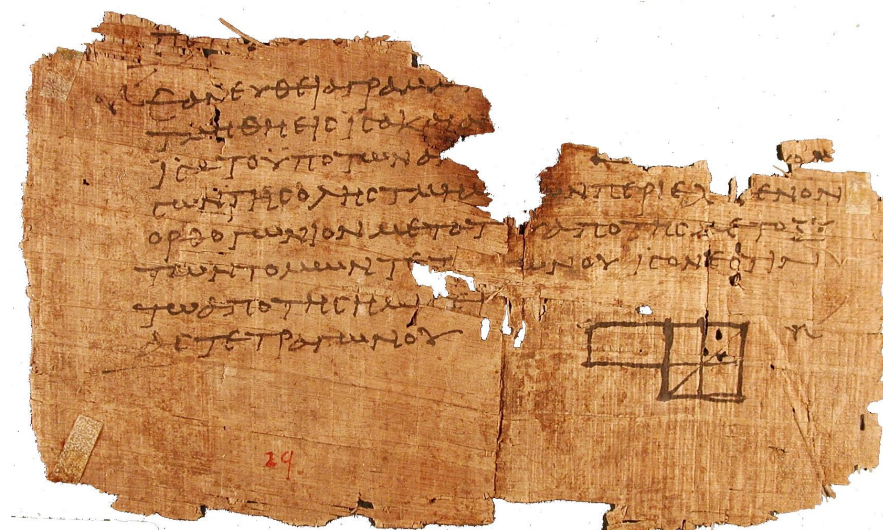 ΕΑΝ ΕΥΘΕΙΑ ΓΡΑΜ
ΤΜΗΘΗ ΕΙϹ ΙϹΑ ΚΑΙ ΑΝ
ΙϹΑ ΤΟ ΥΠΟ ΤΩΝ Α
ϹΩΝ ΤΗϹ ΟΛΗϹ ΤΜΗΜ ΩΝ ΠΕΡΙΕΧ ΕΝΟΝ
ΟΡΘΟΓΩΝΙΟΝ ΜΕΤΑ ΤΟΥ ΑΠΟ ΤΗϹ ΜΕΤΟΞΥ
ΤΩΝ ΤΟΜΩΝ ΤΕΤ ΩΝΟΥ ΙϹΟΝ ΕϹΤΙΝ
ΤΩ ΑΠΟ ΤΗϹ ΗΜΙϹ
ΑϹ ΤΕΤΡΑΓΩΝΟΥ
29